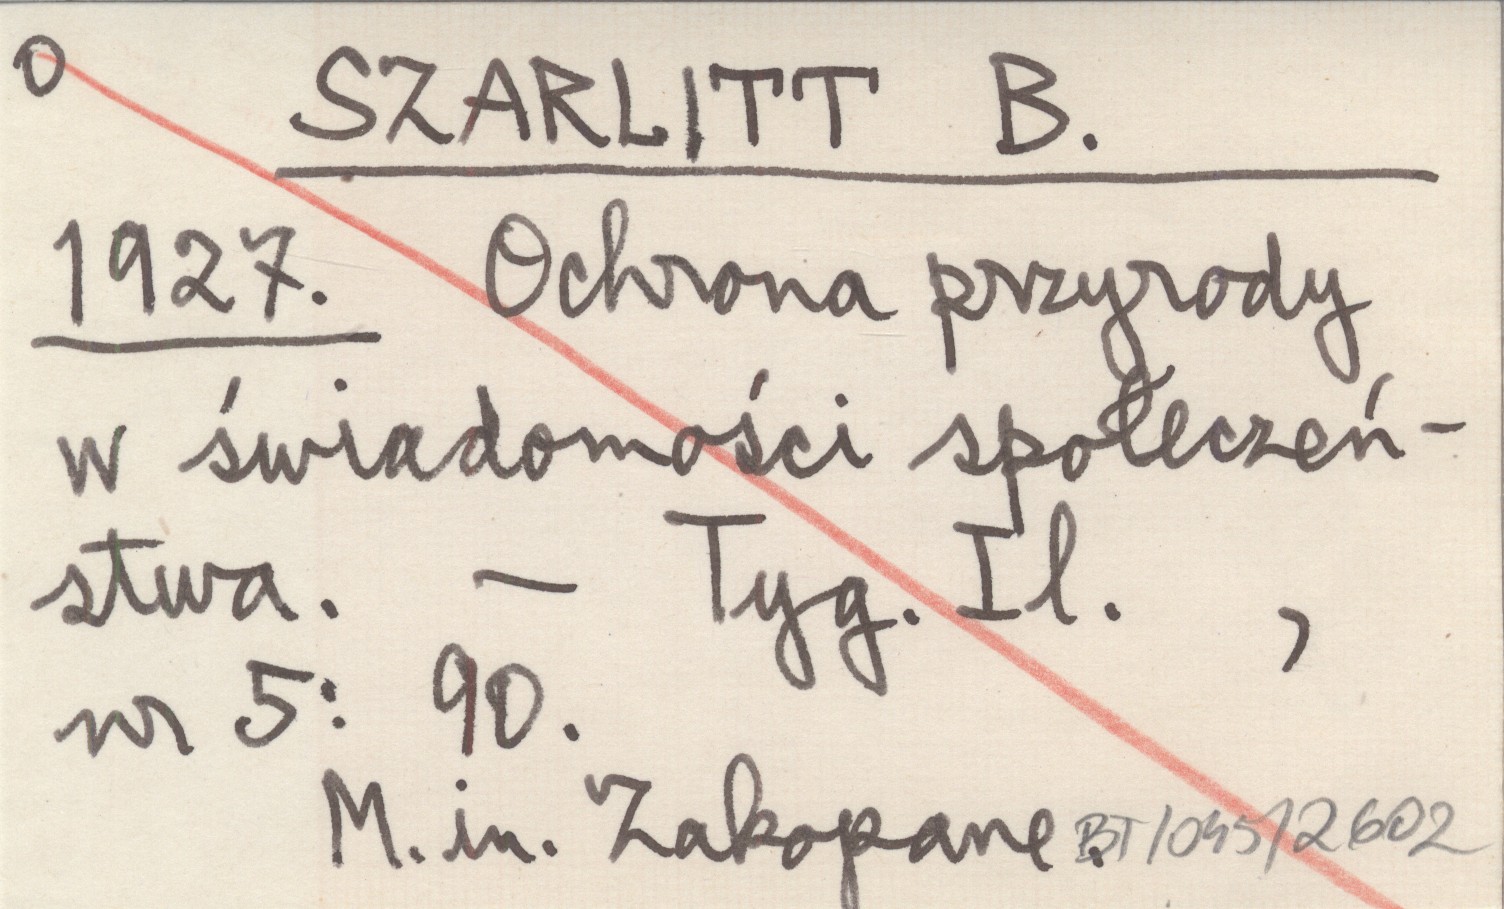 O SZARLITT B.
1927. Ochrona przyrody
w świadomości społeczeń-
stwa. — Tyg. Il. ,
nr 5: 90.
M. in. Zakopane. BT/045/2602